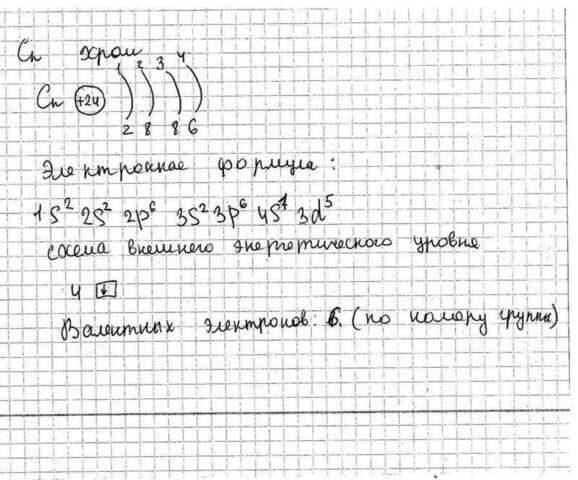 Cr хром
1 2 3 4
Cr +24
2 8 8 6
Электронная формула:
1S² 2S² 2p⁶ 3S² 3p⁶ 4S¹ 3d⁵
схема внешнего энергетического уровня
4 ↓
Валентных электронов: 6. (по номеру группы)